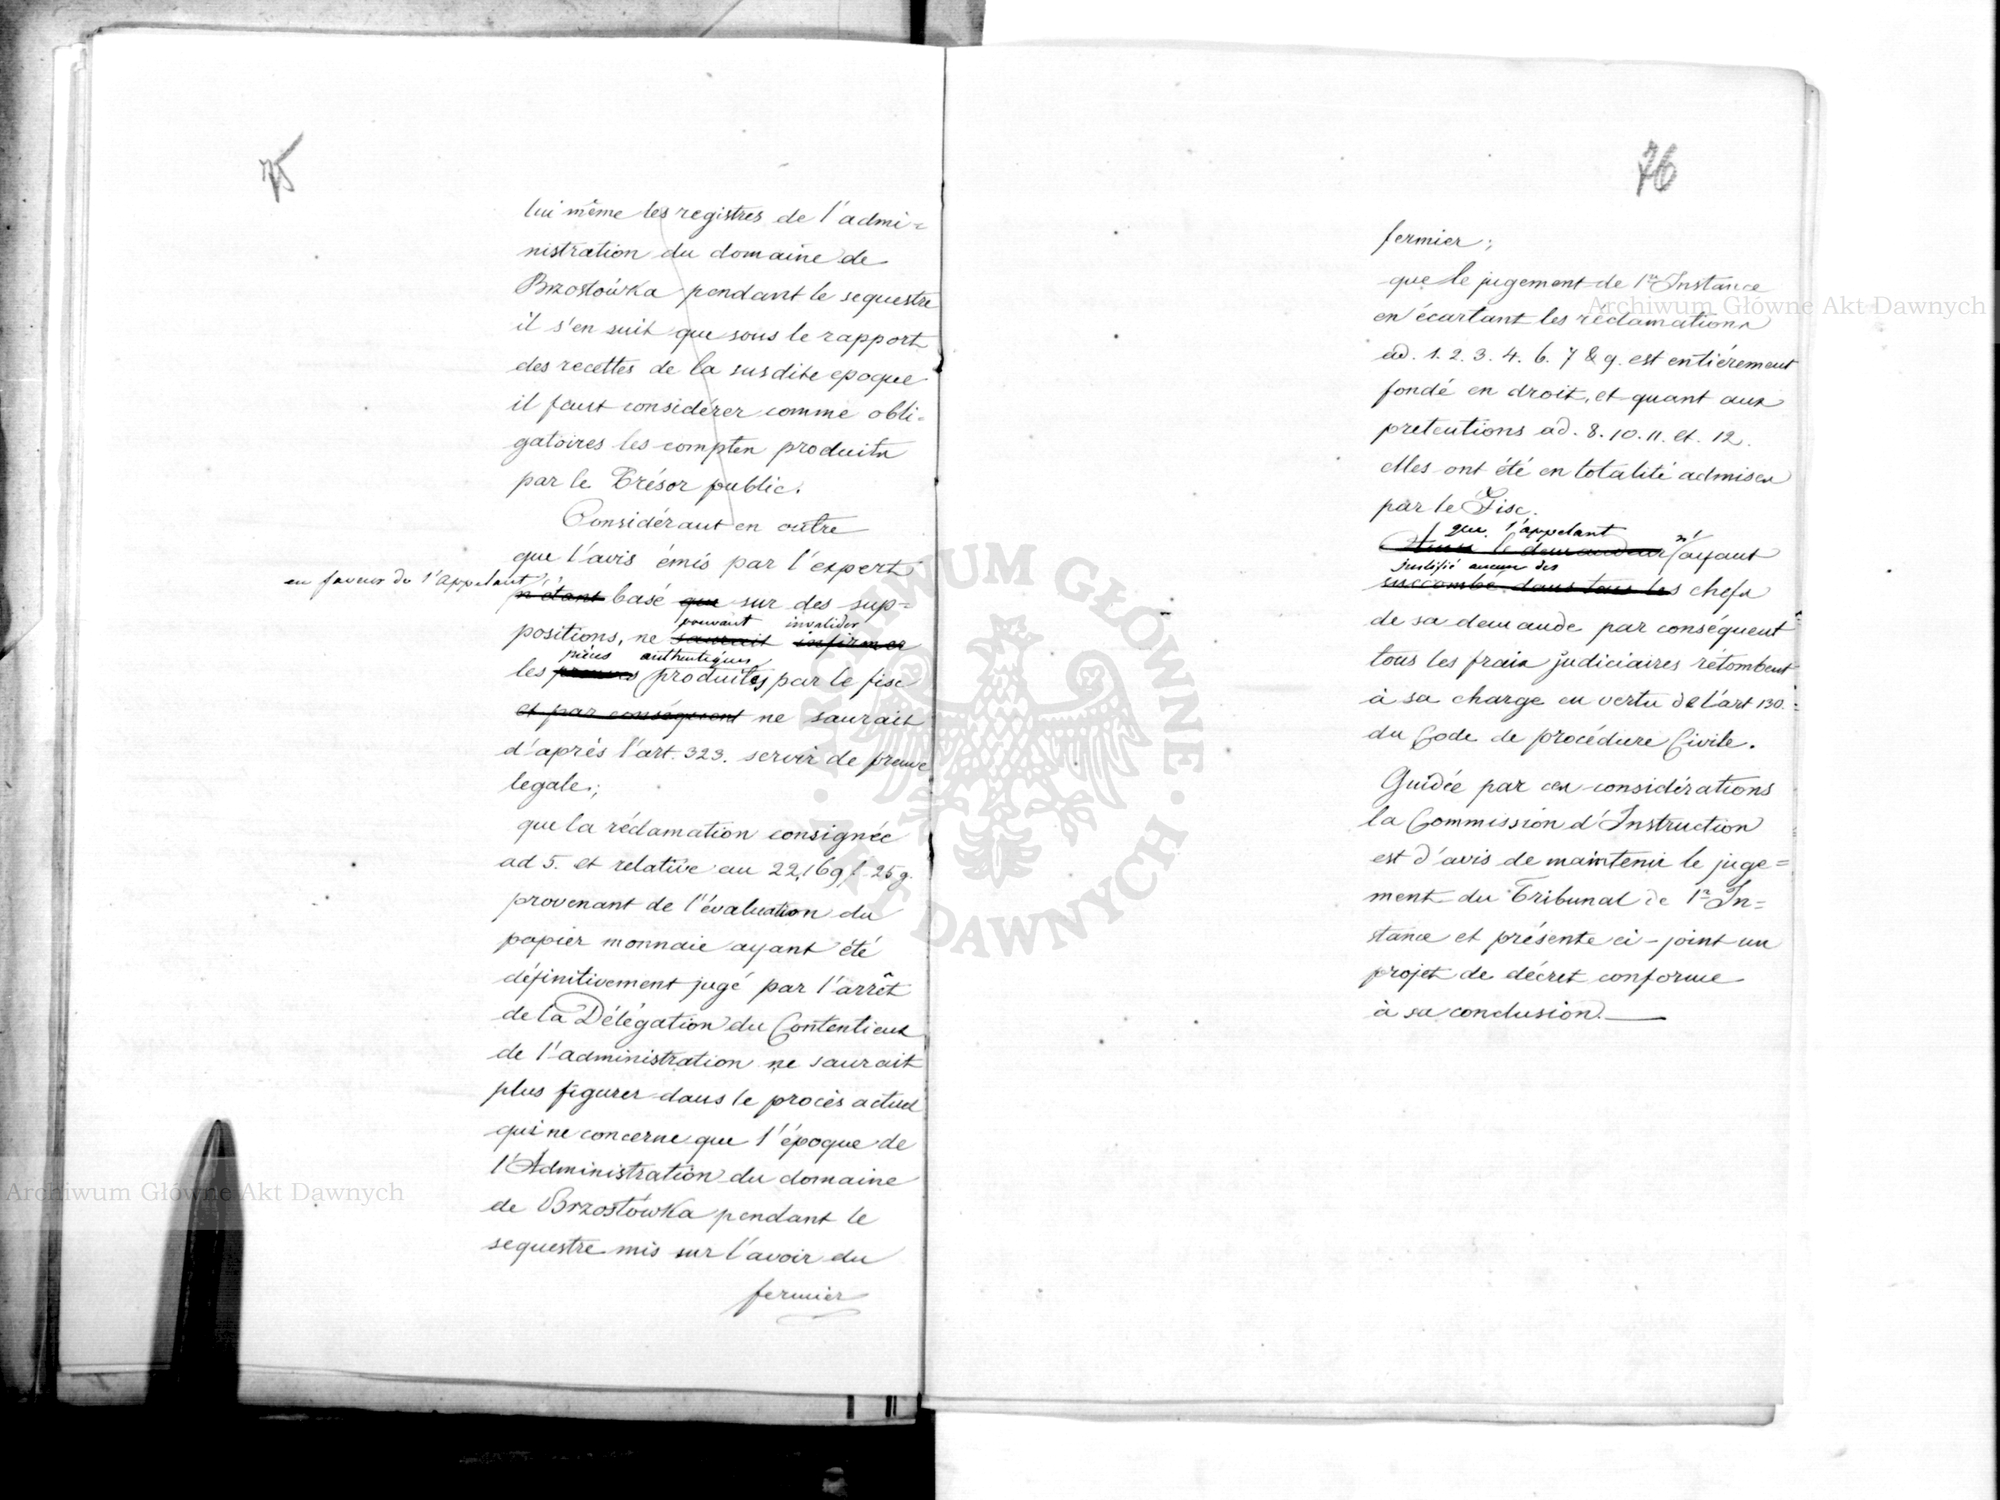 75
lui même les registres de l'admi=
nistration du domaine de
Brzostówka pendant le sequestre
il s'en suit que sous le rapport
des recettes de la susdite epoque
il faut considérer comme obli=
gatoires les comptes produits
par le Trésor public.
Considérant en outre
que l'avis émis par l'expert
en faveur de l'appelant
n'étant basé que sur des sup=
pouvant invalider
positions, ne saurait infirmer
pièces authentiques
les preuves produites par le fisc
et par conséquent ne saurait
d'après l'art. 323. servir de preuve
legale;
que la réclamation consignée
ad 5. et relative au 22,169 f. 25 g.
provenant de l'évaluation du
papier monnaie ayant été
définitivement jugé par l'arrêt
de la Délégation du Contentieux
de l'administration ne saurait
plus figurer dans le procès actuel
qui ne concerne que l'époque de
l'Administration du domaine
de Brzostówka pendant le
sequestre mis sur l'avoir du
fermier
76
fermier;
que le jugement de 1re Instance
en écartant les réclamations
ad. 1. 2. 3. 4. 6. 7 & 9. est entièrement
fondé en droit, et quant aux
pretentions ad. 8. 10. 11. et. 12.
elles ont été en totalité admises
par le Fisc.
que l'appelant n'
le demandeur ayant
justifié aucun des
succombé dans tous les chefs
de sa demande par conséquent
tous les frais judiciaires rétombent
à sa charge en vertu de l'art 130.
du Code de procédure Civile.
Guidée par ces considérations
la Commission d'Instruction
est d'avis de maintenir le juge=
ment du Tribunal de 1re In=
stance et présente ci-joint un
projet de décret conforme
à sa conclusion.
Archiwum Główne Akt Dawnych
Archiwum Główne Akt Dawnych
ARCHIWUM GŁÓWNE · AKT DAWNYCH ·